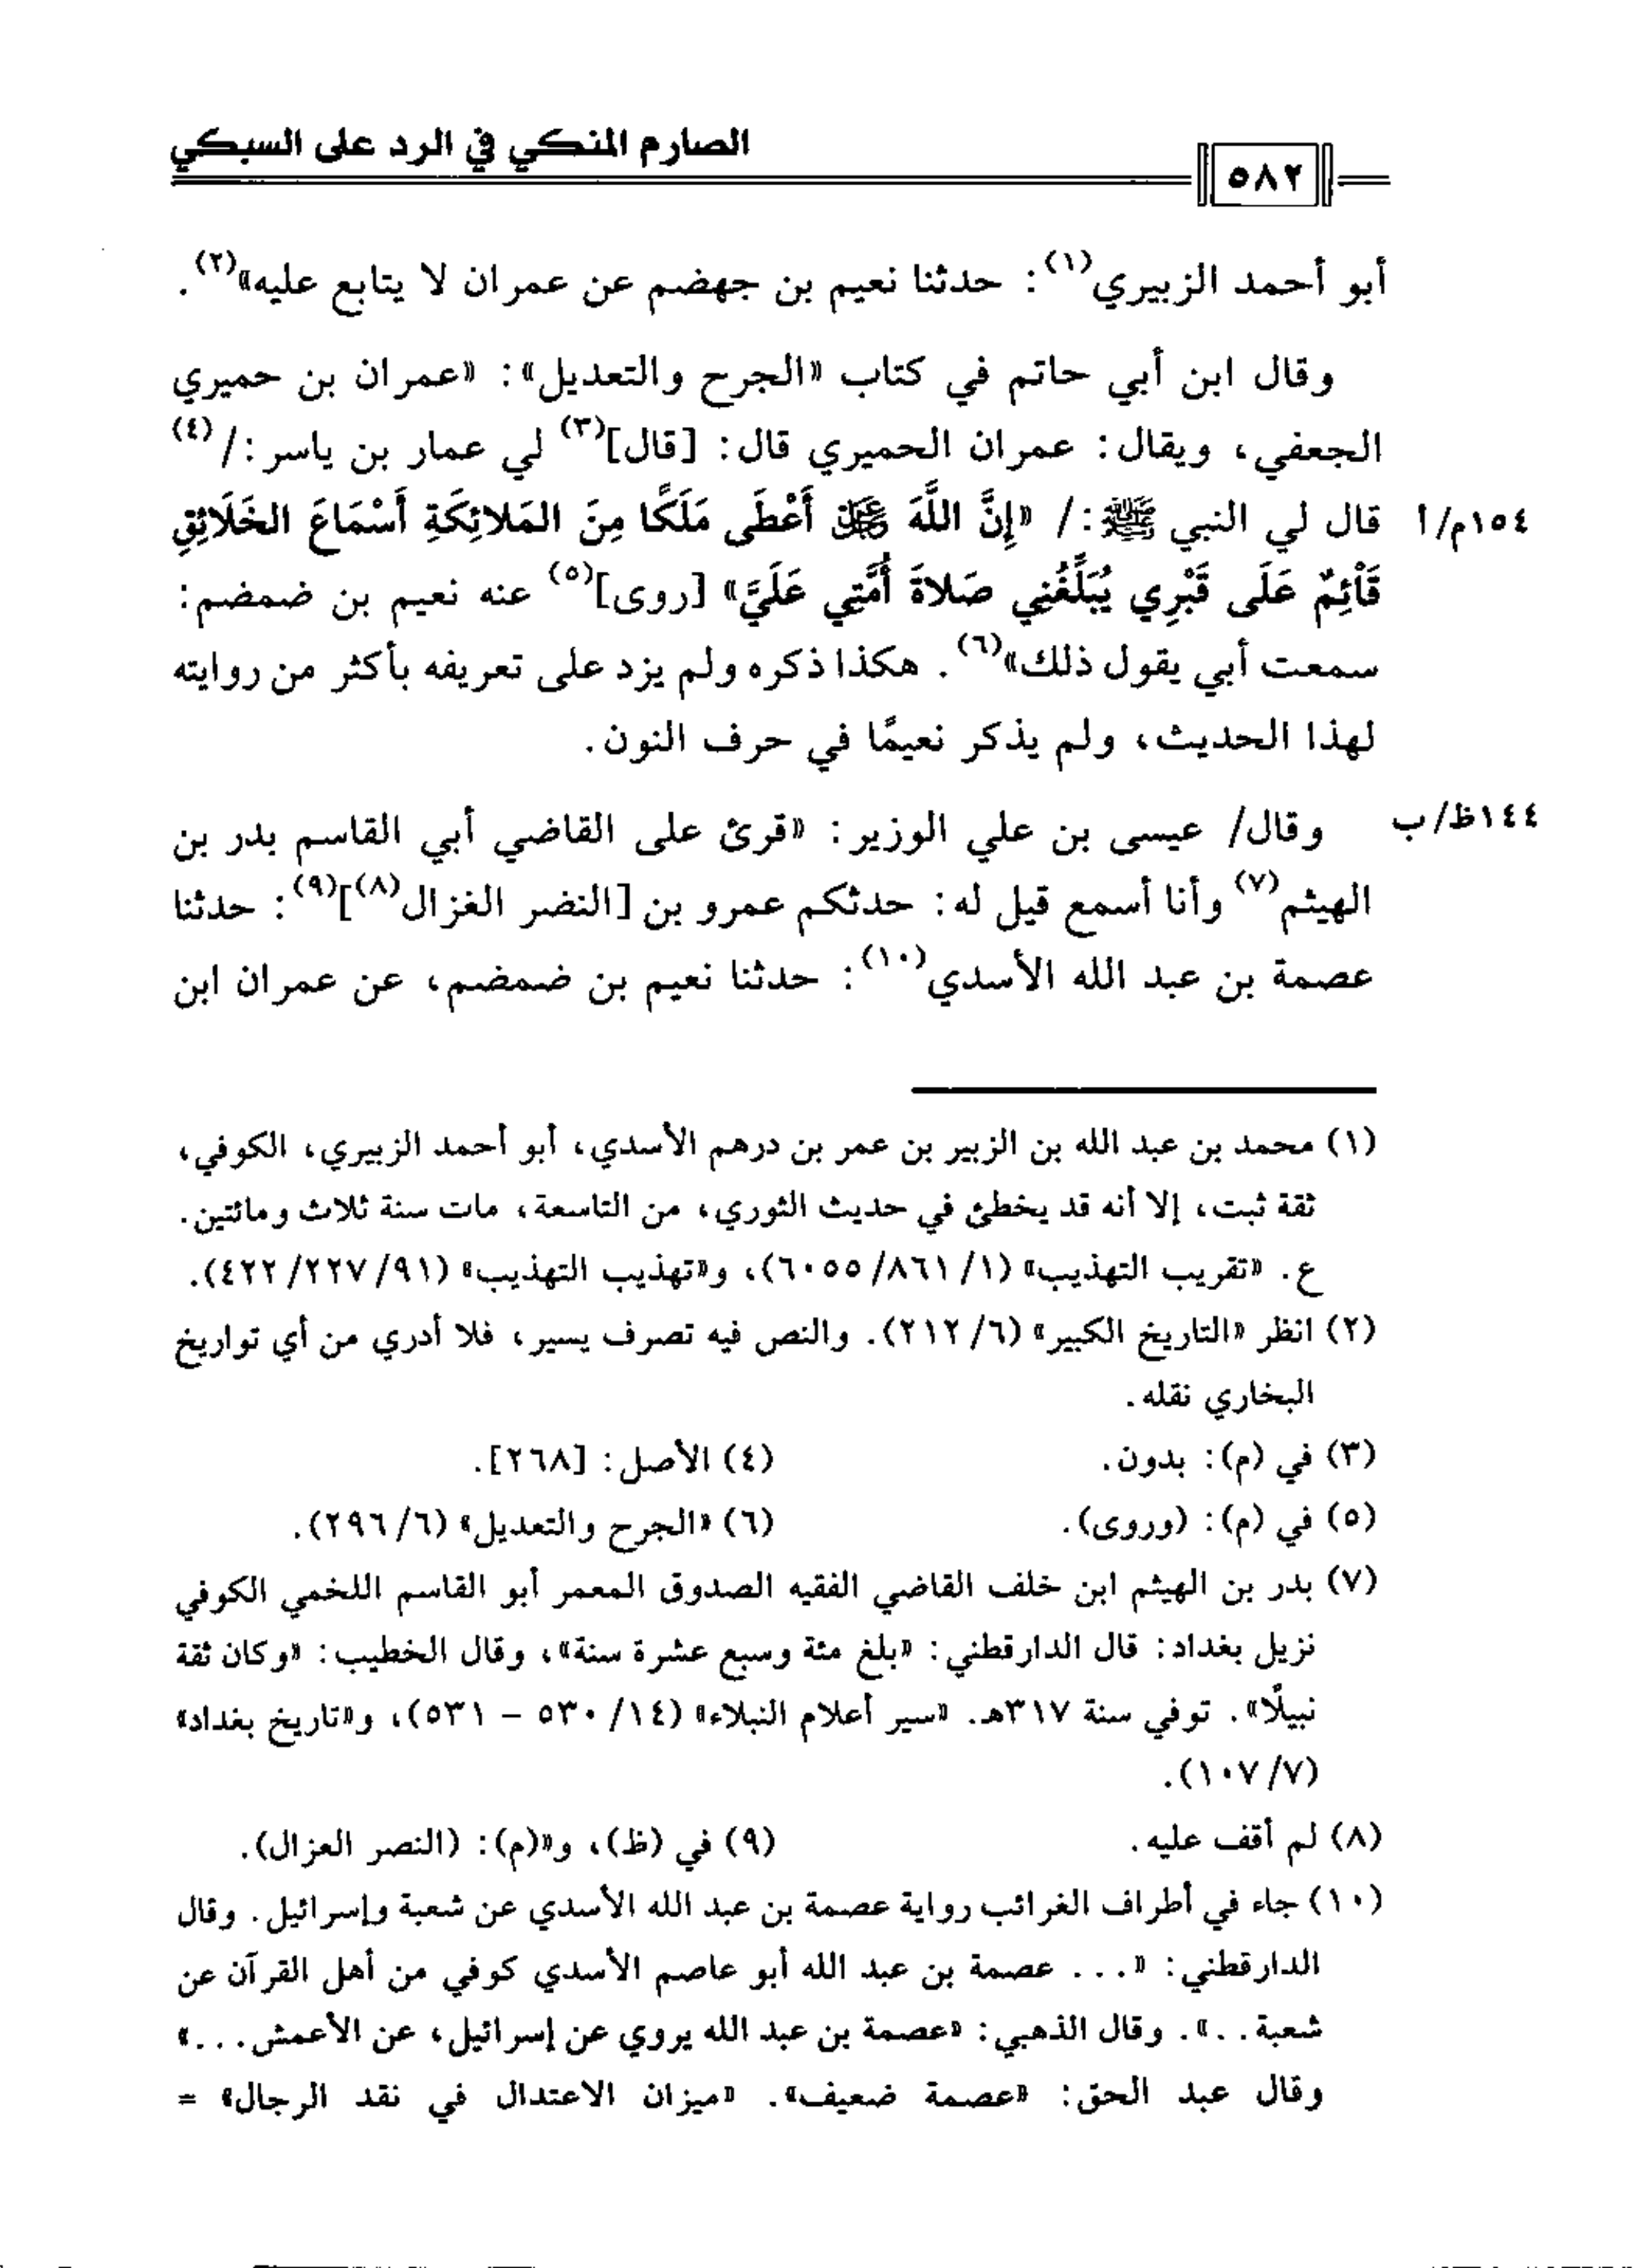 الصارم المنكي في الرد على السبكي
٥٨٢
أبو أحمد الزبيري(١): حدثنا نعيم بن جهضم عن عمران لا يتابع عليه»(٢).
وقال ابن أبي حاتم في كتاب «الجرح والتعديل»: «عمران بن حميري
الجعفي، ويقال: عمران الحميري قال: [قال](٣) لي عمار بن ياسر:/(٤)
١٥٤م/أ قال لي النبي ﷺ:/ «إِنَّ اللَّهَ ﷻ أَعْطَى مَلَكًا مِنَ المَلائِكَةِ أَسْمَاعَ الخَلَائِقِ
قَائِمٌ عَلَى قَبْرِي يُبَلِّغُنِي صَلاةَ أُمَّتِي عَلَيَّ» [روى](٥) عنه نعيم بن ضمضم:
سمعت أبي يقول ذلك»(٦). هكذا ذكره ولم يزد على تعريفه بأكثر من روايته
لهذا الحديث، ولم يذكر نعيمًا في حرف النون.
١٤٤ظ/ب وقال/ عيسى بن علي الوزير: «قرئ على القاضي أبي القاسم بدر بن
الهيثم(٧) وأنا أسمع قيل له: حدثكم عمرو بن [النضر الغزال(٨)](٩): حدثنا
عصمة بن عبد الله الأسدي(١٠): حدثنا نعيم بن ضمضم، عن عمران ابن
(١) محمد بن عبد الله بن الزبير بن عمر بن درهم الأسدي، أبو أحمد الزبيري، الكوفي،
ثقة ثبت، إلا أنه قد يخطئ في حديث الثوري، من التاسعة، مات سنة ثلاث ومائتين.
ع. «تقريب التهذيب» (١/ ٨٦١/ ٦٠٥٥)، و«تهذيب التهذيب» (٩١/ ٢٢٧/ ٤٢٢).
(٢) انظر «التاريخ الكبير» (٦/ ٢١٢). والنص فيه تصرف يسير، فلا أدري من أي تواريخ
البخاري نقله.
(٣) في (م): بدون. (٤) الأصل: [٢٦٨].
(٥) في (م): (وروى). (٦) «الجرح والتعديل» (٦/ ٢٩٦).
(٧) بدر بن الهيثم ابن خلف القاضي الفقيه الصدوق المعمر أبو القاسم اللخمي الكوفي
نزيل بغداد: قال الدارقطني: «بلغ مئة وسبع عشرة سنة»، وقال الخطيب: «وكان ثقة
نبيلًا». توفي سنة ٣١٧هـ. «سير أعلام النبلاء» (١٤/ ٥٣٠ - ٥٣١)، و«تاريخ بغداد»
(٧/ ١٠٧).
(٨) لم أقف عليه. (٩) في (ظ)، و«(م): (النصر العزال).
(١٠) جاء في أطراف الغرائب رواية عصمة بن عبد الله الأسدي عن شعبة وإسرائيل. وقال
الدارقطني: «... عصمة بن عبد الله أبو عاصم الأسدي كوفي من أهل القرآن عن
شعبة..». وقال الذهبي: «عصمة بن عبد الله يروي عن إسرائيل، عن الأعمش...»
وقال عبد الحق: «عصمة ضعيف». «ميزان الاعتدال في نقد الرجال» =